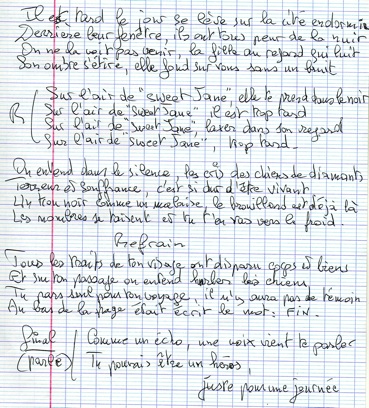 Il est tard le jour se lève sur la cité endormie
Derrière leur fenêtre, ils ont tous peur de la nuit
On ne la voit pas venir, la fille au regard qui luit
Son ombre s'étire, elle fond sur vous sans un bruit
R Sur l'air de "Sweet Jane", elle te prend dans le noir
Sur l'air de "Sweet Jane" il est trop tard
Sur l'air de "Sweet Jane", laser dans son regard
Sur l'air de "Sweet Jane", trop tard.
On entend dans le silence, les cris des chiens de diamants
Terreur et souffrance, c'est si dur d'être vivant
Un trou noir comme un malaise, le brouillard est déjà là
Les nombres se taisent et tu t'en vas vers le froid.
Refrain
Tous les traits de ton visage ont disparu corps et biens
Et sur ton passage on entend hurler les chiens
Tu pars seul pour ton voyage, il n'y aura pas de témoin
Au bas de la page était écrit le mot: FIN.
Final (parlé) Comme un écho, une voix vient te parler
Tu pourrais être un héros,
juste pour une journée